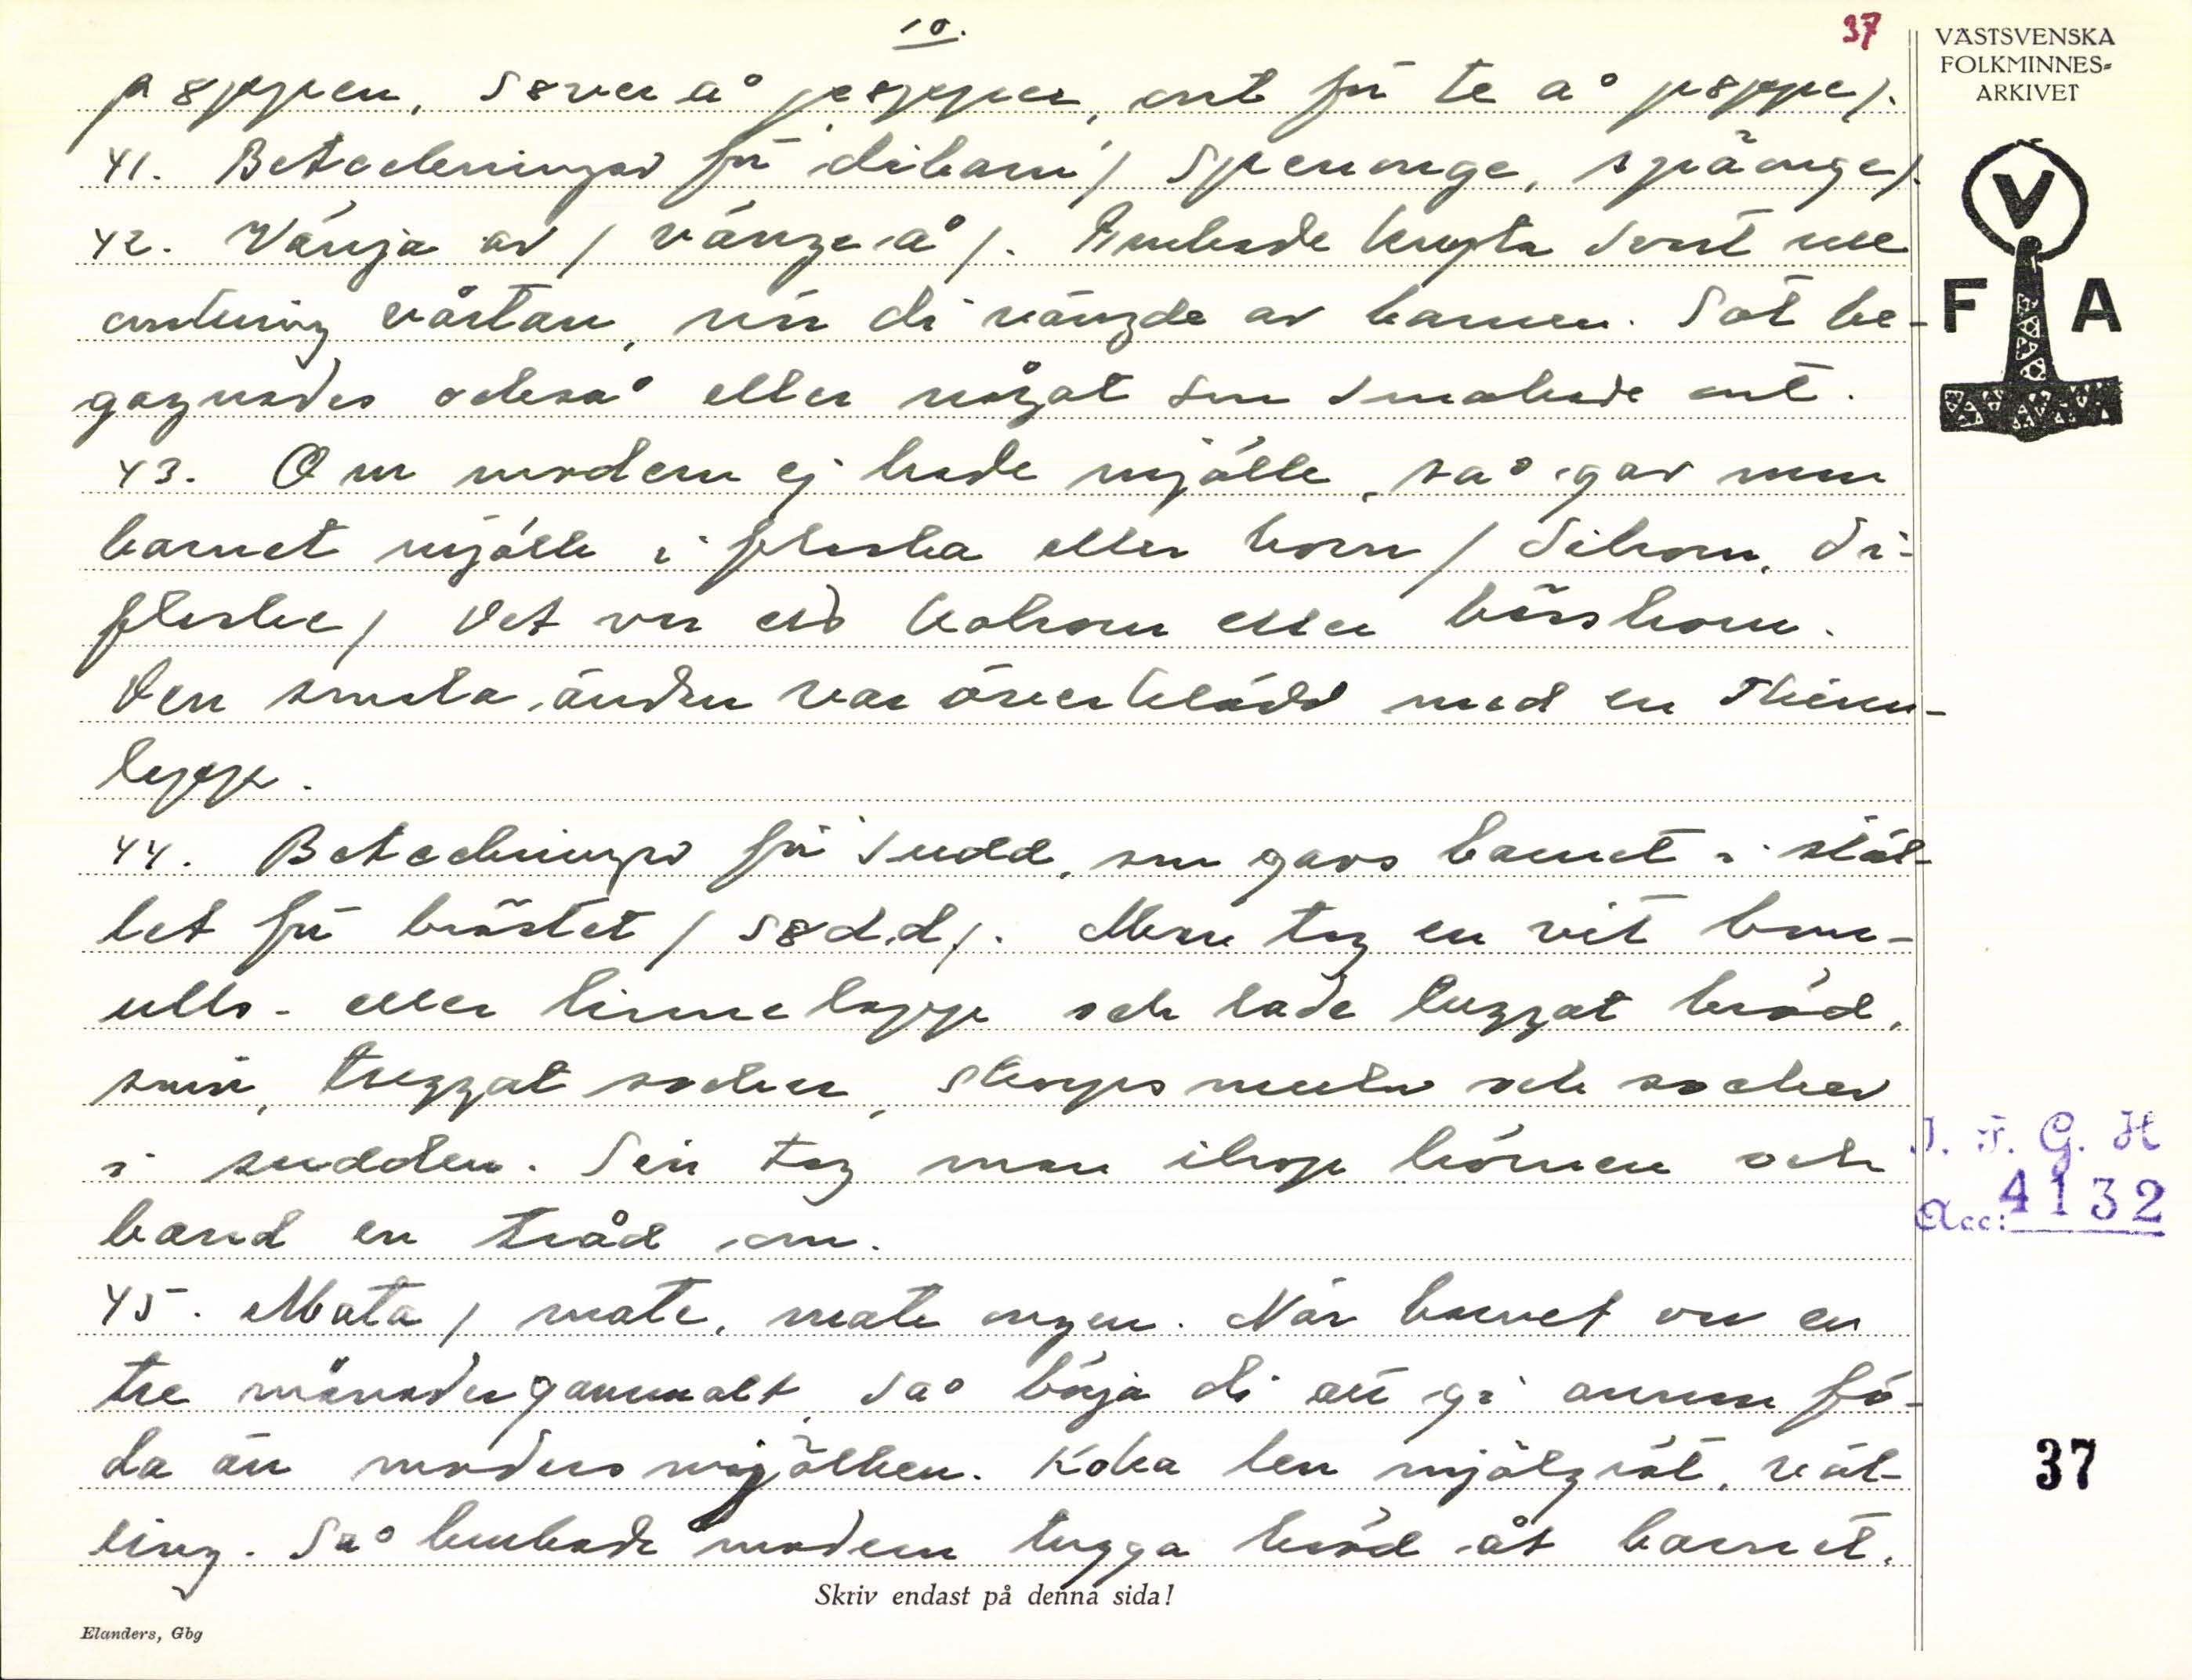 10.
37
VÄSTSVENSKA
FOLKMINNES-
ARKIVET
V
F A
p8ppen, s8ver å p8pper, ont för te å p8ppe/.
41. Beteckningar för dibarn / spenonge, späonge/.
42. Vänja av / vänge å /. Brukade knyta svart
omkring vårtan, när di vängde av barnen. Sot be-
gagnades också eller något som smakade ont.
43. Om modern ej hade mjölk, så gav man
barnet mjölk i flaska eller horn / dihorn, di-
flaske / Det var ett kohorn eller bässhorn.
Den smala änden var överklädd med en skinn-
lapp.
44. Beteckningar för sudd, som gavs barnet i stäl-
let för bröstet / s8dd/. Man tog en vit bom-
ulls- eller linnelapp och lade tuggat bröd,
smör, tuggat socker, skorpsmulor och socker
i sudden. Sen tog man ihop hörnen och
band en tråd om.
45. Mata / mate, mate ongen. När barnet var en
tre månader gammalt, så börja di att gi annan fö-
da än modersmjölken. Koka len mjölgröt, väl-
ling. Så brukade modern tugga bröd åt barnet.
J. F. G. H
Acc: 4132
37
Skriv endast på denna sida!
Elanders, Gbg